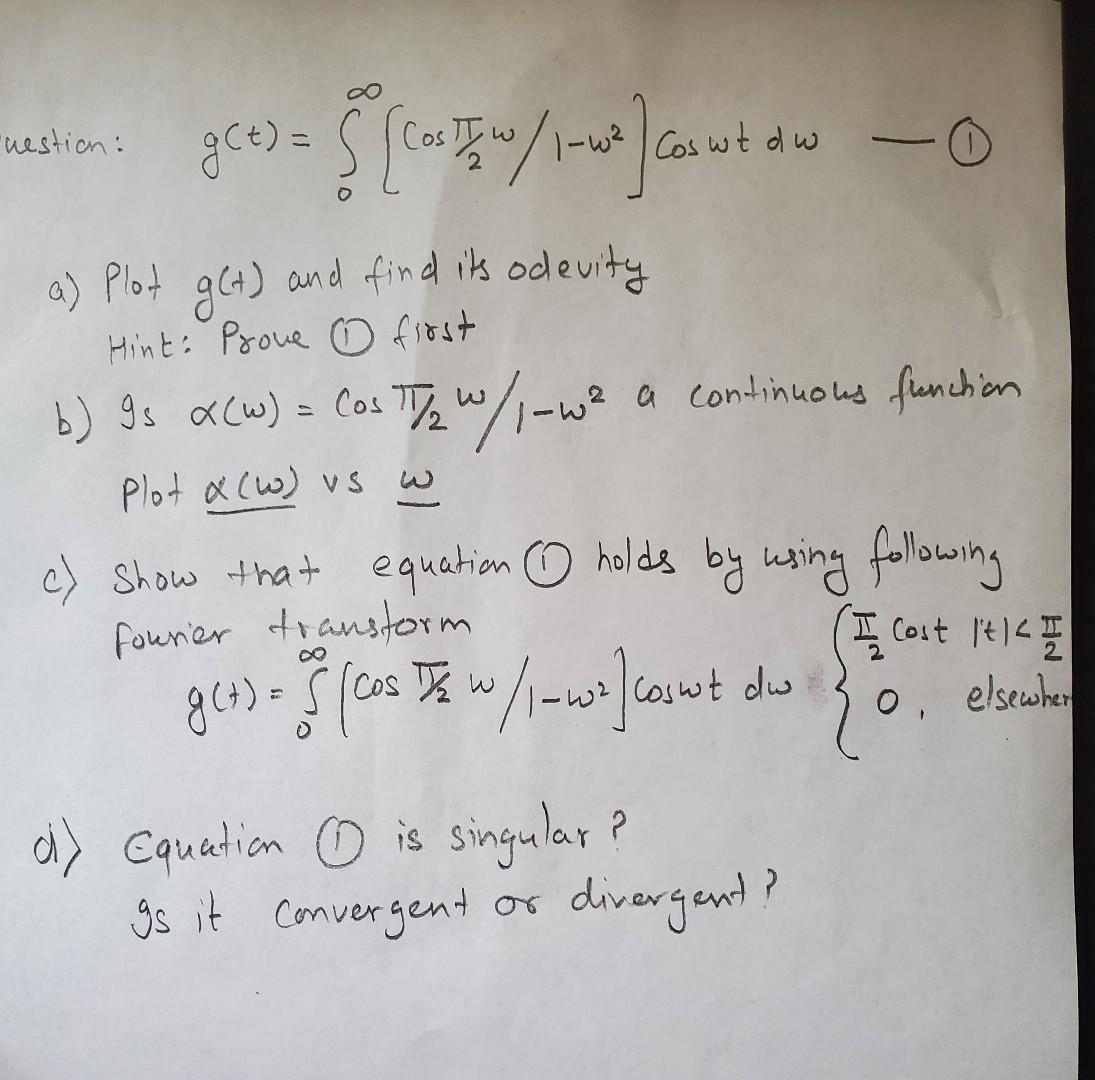 uestion: g(t) = ∫₀^∞ [Cos π/2 w / 1-w²] Cos wt dw — ①
a) Plot g(t) and find its odevity
Hint: Prove ① first
b) Is α(w) = Cos π/2 w / 1-w² a continuous function
Plot α(w) vs w
c) Show that equation ① holds by using following
fourier transform
g(t) = ∫₀^∞ [cos π/2 w / 1-w²] cos wt dw { π/2 Cos t |t| < π/2
0, elsewher
d) Equation ① is singular?
Is it convergent or divergent?